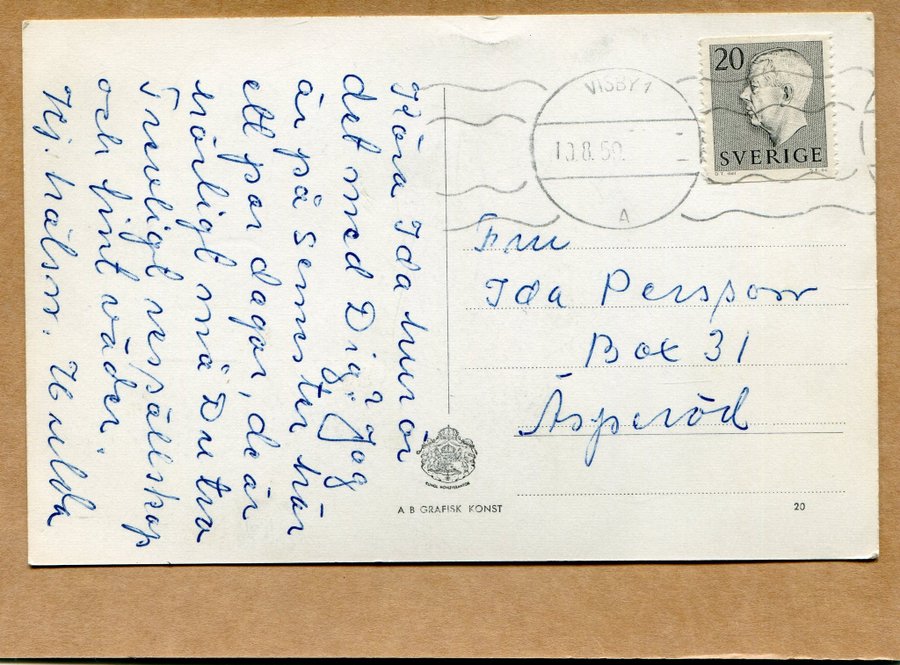 Kära Ida hur är
det med Dig? Jag
är på semester här
ett par dagar, de är
härligt må Du tro
Trevligt ressällskap
och fint väder.
Hj. hälsn. Hulda
VISBY 1
A
20
SVERIGE
Fru
Ida Persson
Box 31
Äsperöd
A B GRAFISK KONST
20